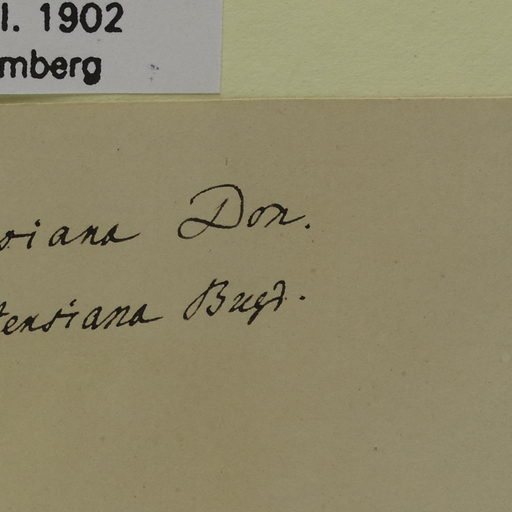 l. 1902
mberg
siana Don.
tensiana Bugd.